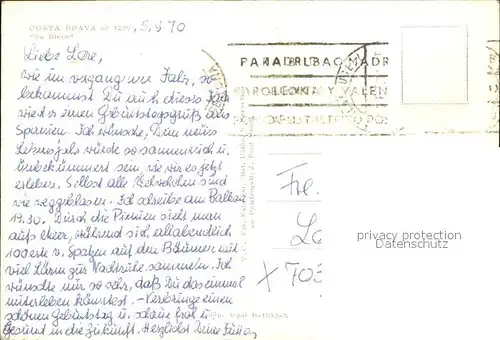 COSTA BRAVA nº 1237
"Sa Riera"
, 5.8 70
Liebe Lore,
wie im vergangenen Jahr, so
bekommst Du auch dieses Jahr
wieder einen Geburtstagsgruß aus
Spanien. Ich wünsche, Dein neues
Lebensjahr würde so sonnenreich u.
unbekümmert sein, wie wir es jetzt
erleben. Selbst alle Wehwehchen sind
wie weggeblasen. Ich schreibe am Balkon
19.30. Durch die Pinien sieht man
aufs Meer, während sich allabendlich
100erte v. Spatzen auf den Bäumen mit
viel Lärm zur Nachtruhe sammeln. Ich
wünschte nur so sehr, daß Du das einmal
miterleben könntest. - Verbringe einen
schönen Geburtstag u. schaue froh u.
gesund in die Zukunft. Herzlichst Deine
PARA BILBAO MADR
BARCELONA Y VALEN
Fr.
Lo
X 703
Privatsammlung
ansichtskarten-center.de